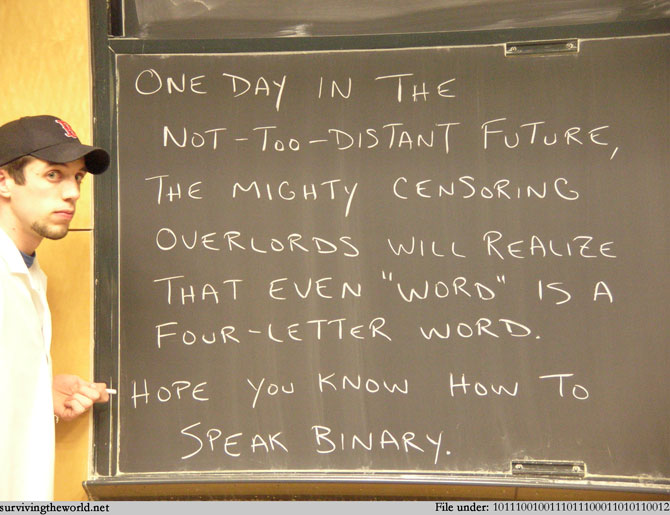 ONE DAY IN THE
NOT-TOO-DISTANT FUTURE,
THE MIGHTY CENSORING
OVERLORDS WILL REALIZE
THAT EVEN "WORD" IS A
FOUR-LETTER WORD.
HOPE YOU KNOW HOW TO
SPEAK BINARY.
survivingtheworld.net File under: 1011100100111011100011010110012